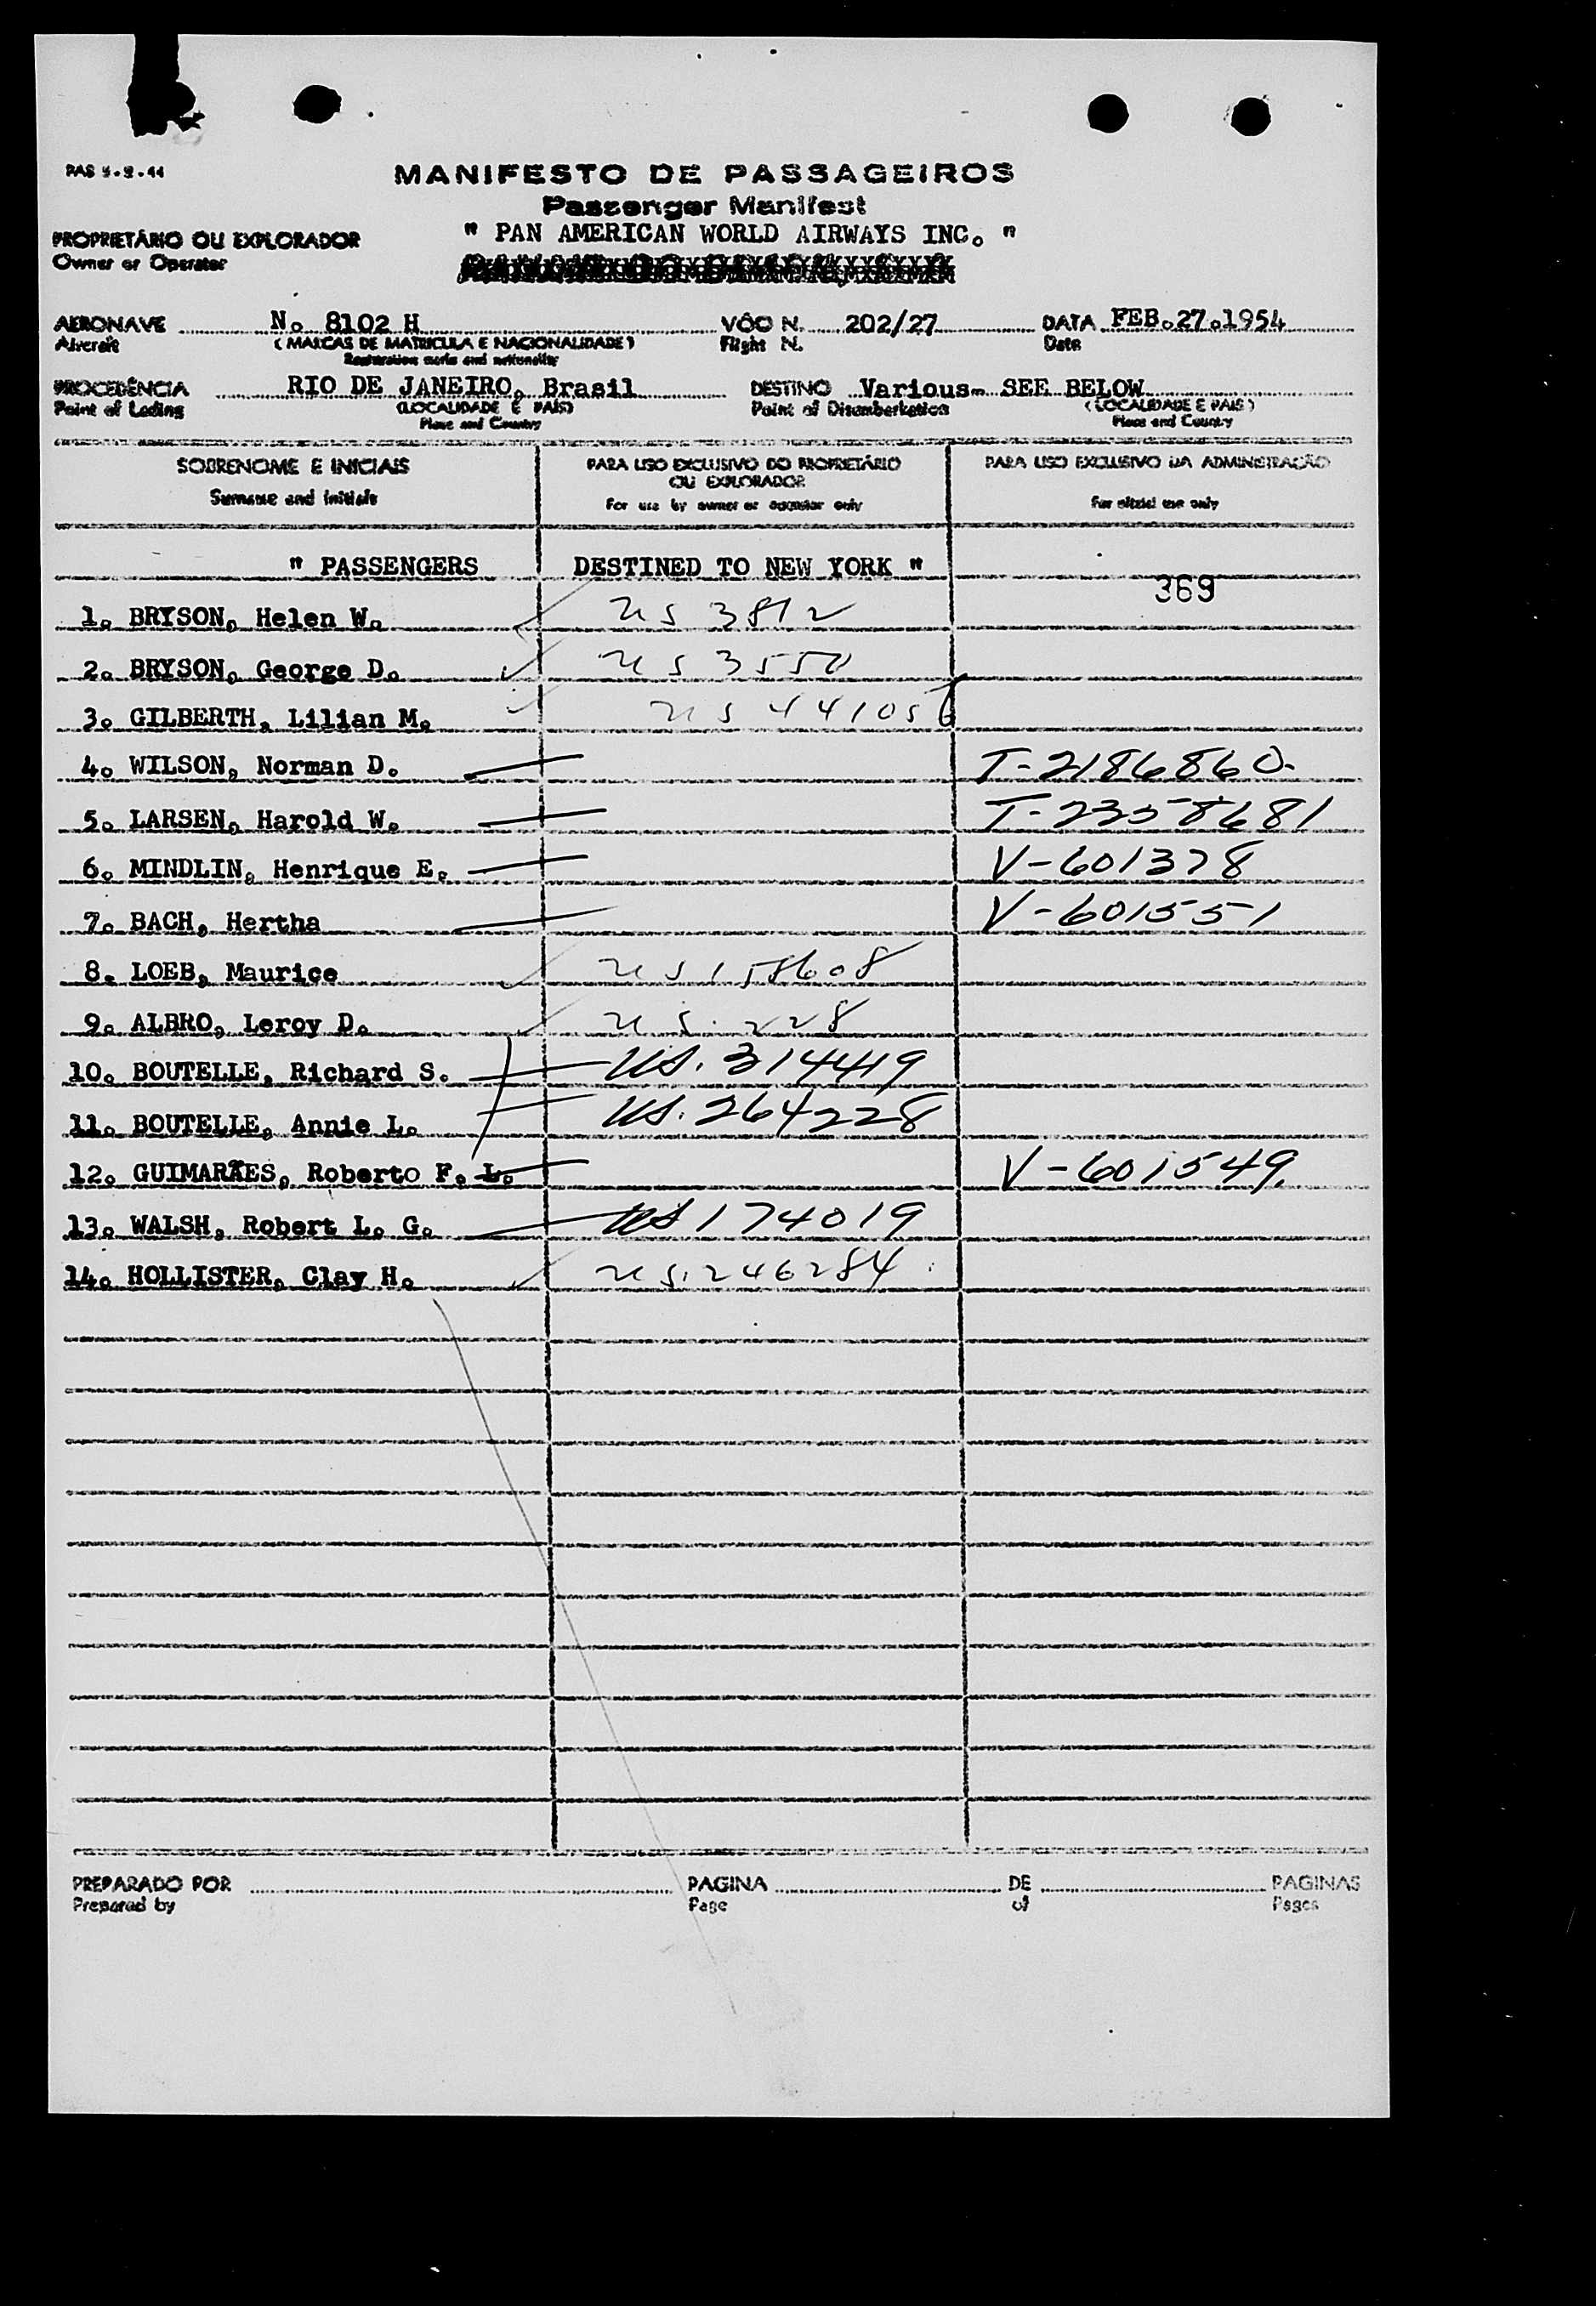 PAS 5-2-44
MANIFESTO DE PASSAGEIROS
Passenger Manifest
PROPRIETÁRIO OU EXPLORADOR " PAN AMERICAN WORLD AIRWAYS INC. "
Owner or Operator
AERONAVE No 8102 H VÔO N. 202/27 DATA FEB.27.1954
Aircraft (MARCAS DE MATRICULA E NACIONALIDADE) Flight N. Date
Registration marks and nationality
PROCEDÊNCIA RIO DE JANEIRO, Brasil DESTINO Various- SEE BELOW
Point of Lading (LOCALIDADE E PAÍS) Point of Disembarkation (LOCALIDADE E PAIS)
Place and Country Place and Country
SOBRENOME E INICIAIS PARA USO EXCLUSIVO DO PROPRIETÁRIO OU EXPLORADOR PARA USO EXCLUSIVO DA ADMINISTRAÇÃO
Surname and initials For use by owner or operator only For official use only
" PASSENGERS DESTINED TO NEW YORK "
369
1. BRYSON, Helen W. US 3812
2. BRYSON, George D. US 3550
3. GILBERTH, Lilian M. US 441056
4. WILSON, Norman D. T-2186860-
5. LARSEN, Harold W. T-2358681
6. MINDLIN, Henrique E. V-601378
7. BACH, Hertha V-601551
8. LOEB, Maurice US 158608
9. ALBRO, Leroy D. US. 228
10. BOUTELLE, Richard S. US. 314419
11. BOUTELLE, Annie L. US. 264228
12. GUIMARÃES, Roberto F. L. V-601549.
13. WALSH, Robert L. G. US 174019
14. HOLLISTER, Clay H. US. 246284
PREPARADO POR PAGINA DE PAGINAS
Prepared by Page of Pages